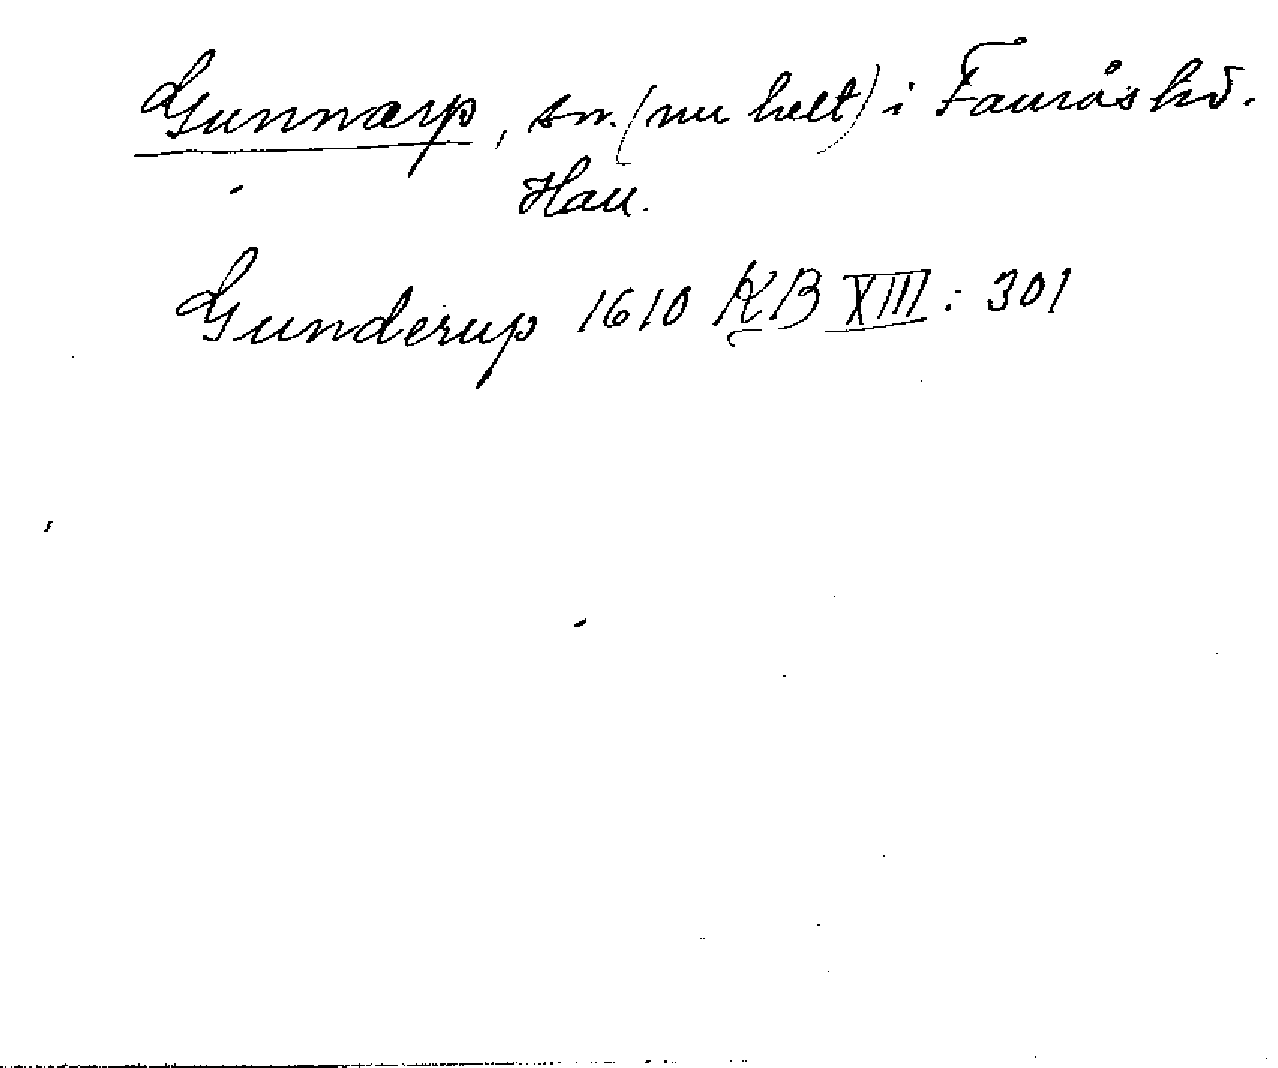 Gunnarp, sn. (nu helt) i Faurås hd.
Hall.
Gunderup 1610 KB XIII: 301